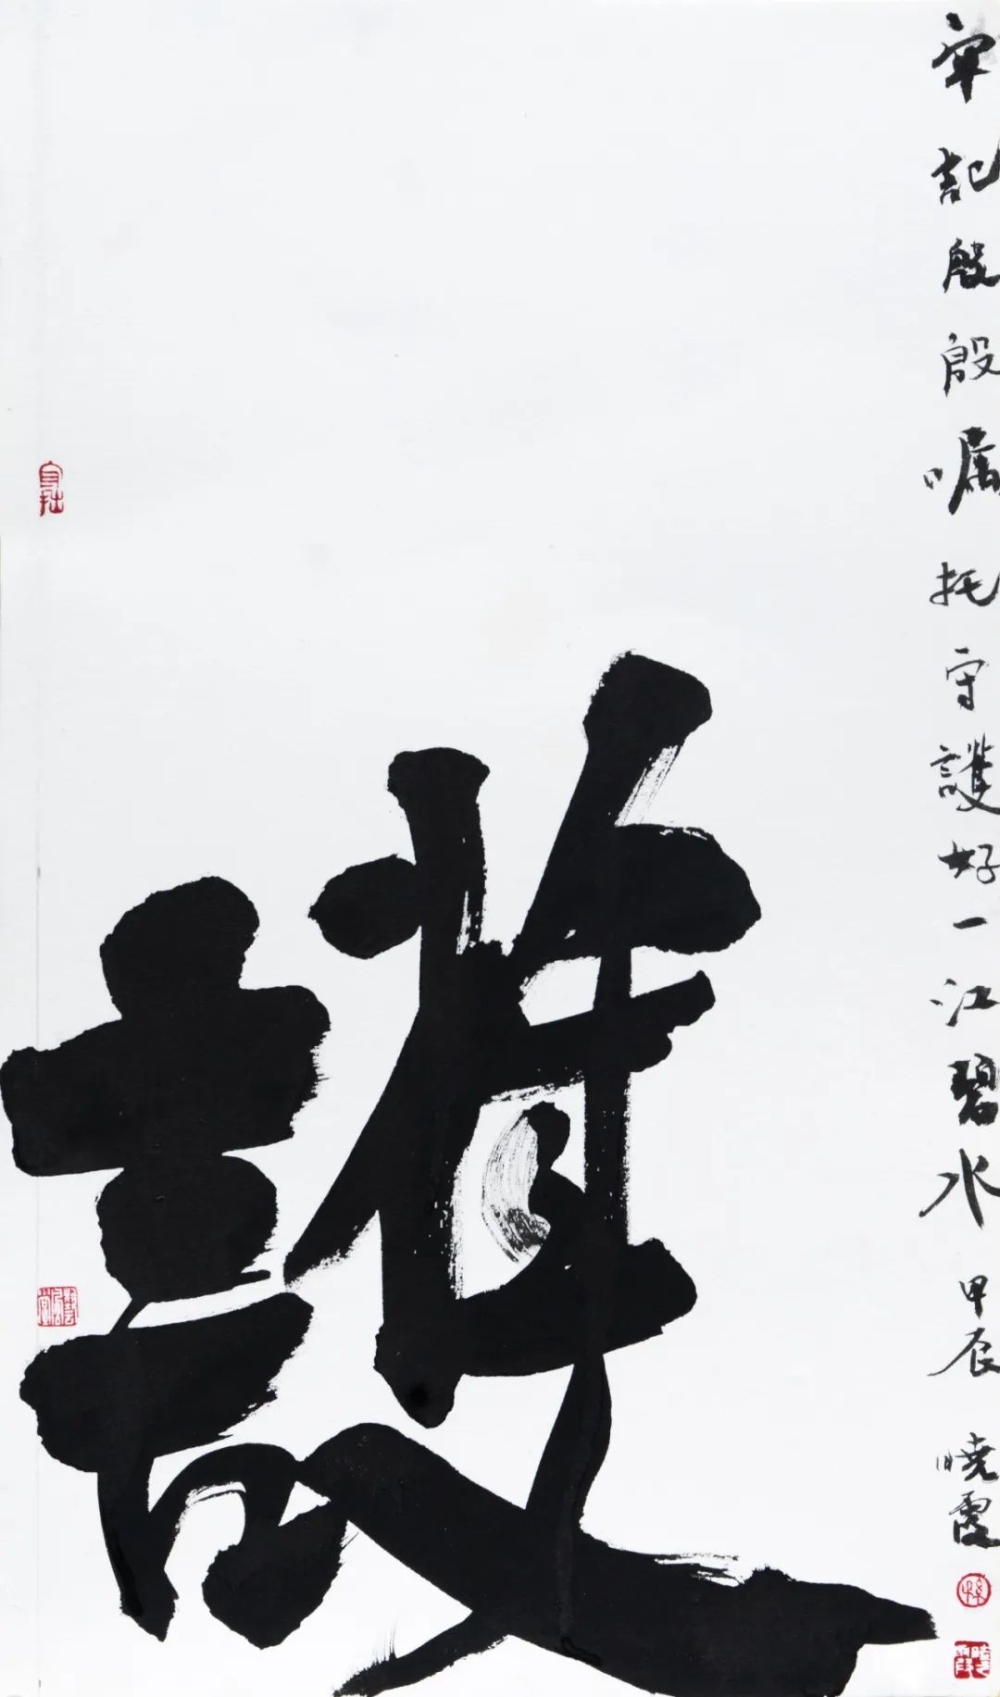 牢記殷殷嘱托守護好一江碧水 甲辰 曉霞
護